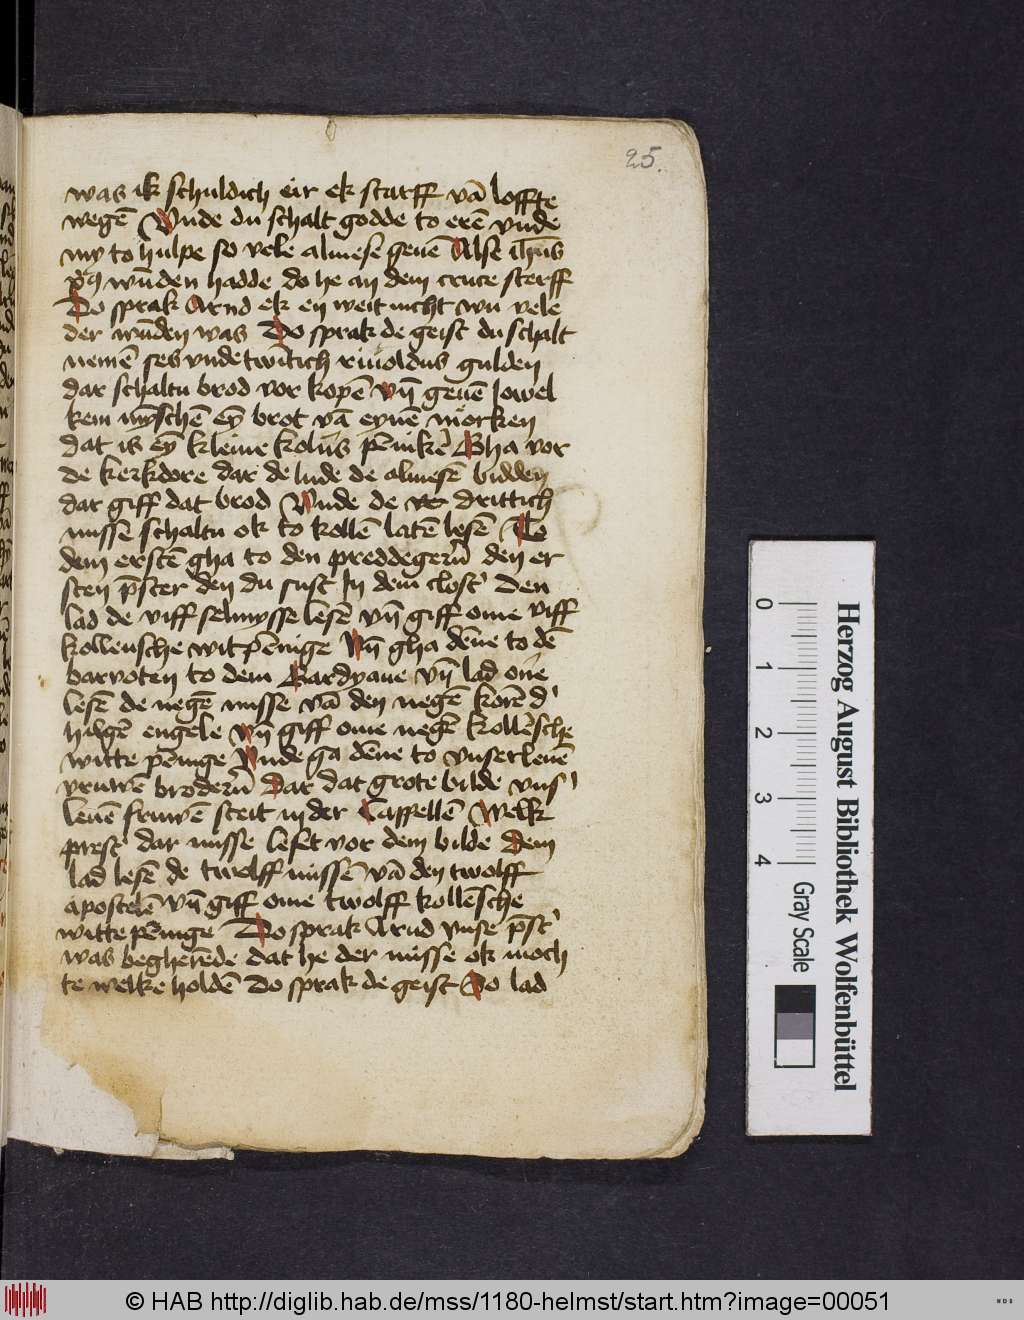 25.
was ik schuldich eir ek starff vā loffte
wegē Vnde du schalt godde to erē vnde
my to hulpe so vele almese geuē Alse ihūs
wūden hadde do he an dem cruce sterff
Do sprak Arnd ek en weit nicht wu vele
der wūden was Do sprak de geist du schalt
nemē ses vnde twītich rinoldus gulden
dar schaltu brod vor kopē vn̄ geuē Jowel
kem myschē eȳ brot vā eynē morken
dat is eȳ kleine kolūs pēnikē Gha vor
de kerkdore dar de lude de almesē bidden
dar giff dat brod Vnde de drittich
missē schaltu ok to kollē latē lesē To
dem erstē gha to den preddegerū den er
sten p̄ster den du sust In dem clost' Den
lad de viff selmysse lesē vn̄ giff ome viff
kollensche witpēnige Vn̄ gha dēne to dē
barvoten to dem Gardyane vn̄ lad one
lesē de negē misse vā den negē korē d'
hilgē engele vn̄ giff ome negē kollēsche
witte pēninge Vnde ga dēne to vnser leuē
vruwē broderū Dar dat grote bilde vns'
leuē fruwē steit in der Cappellē Welk
prest' dar misse leset vor dem bilde Dem
lad lesē de twolff missē vā den twolff
apostelē vn̄ giff ome twolff kollēsche
witte pēnige Do sprak Arnd vnse p̄st'
was begherēde dat he der misse ok moch
te welke holdē Do sprak de geist So lad
0
1
2
3
4
Gray Scale
Herzog August Bibliothek Wolfenbüttel
© HAB http://diglib.hab.de/mss/1180-helmst/start.htm?image=00051